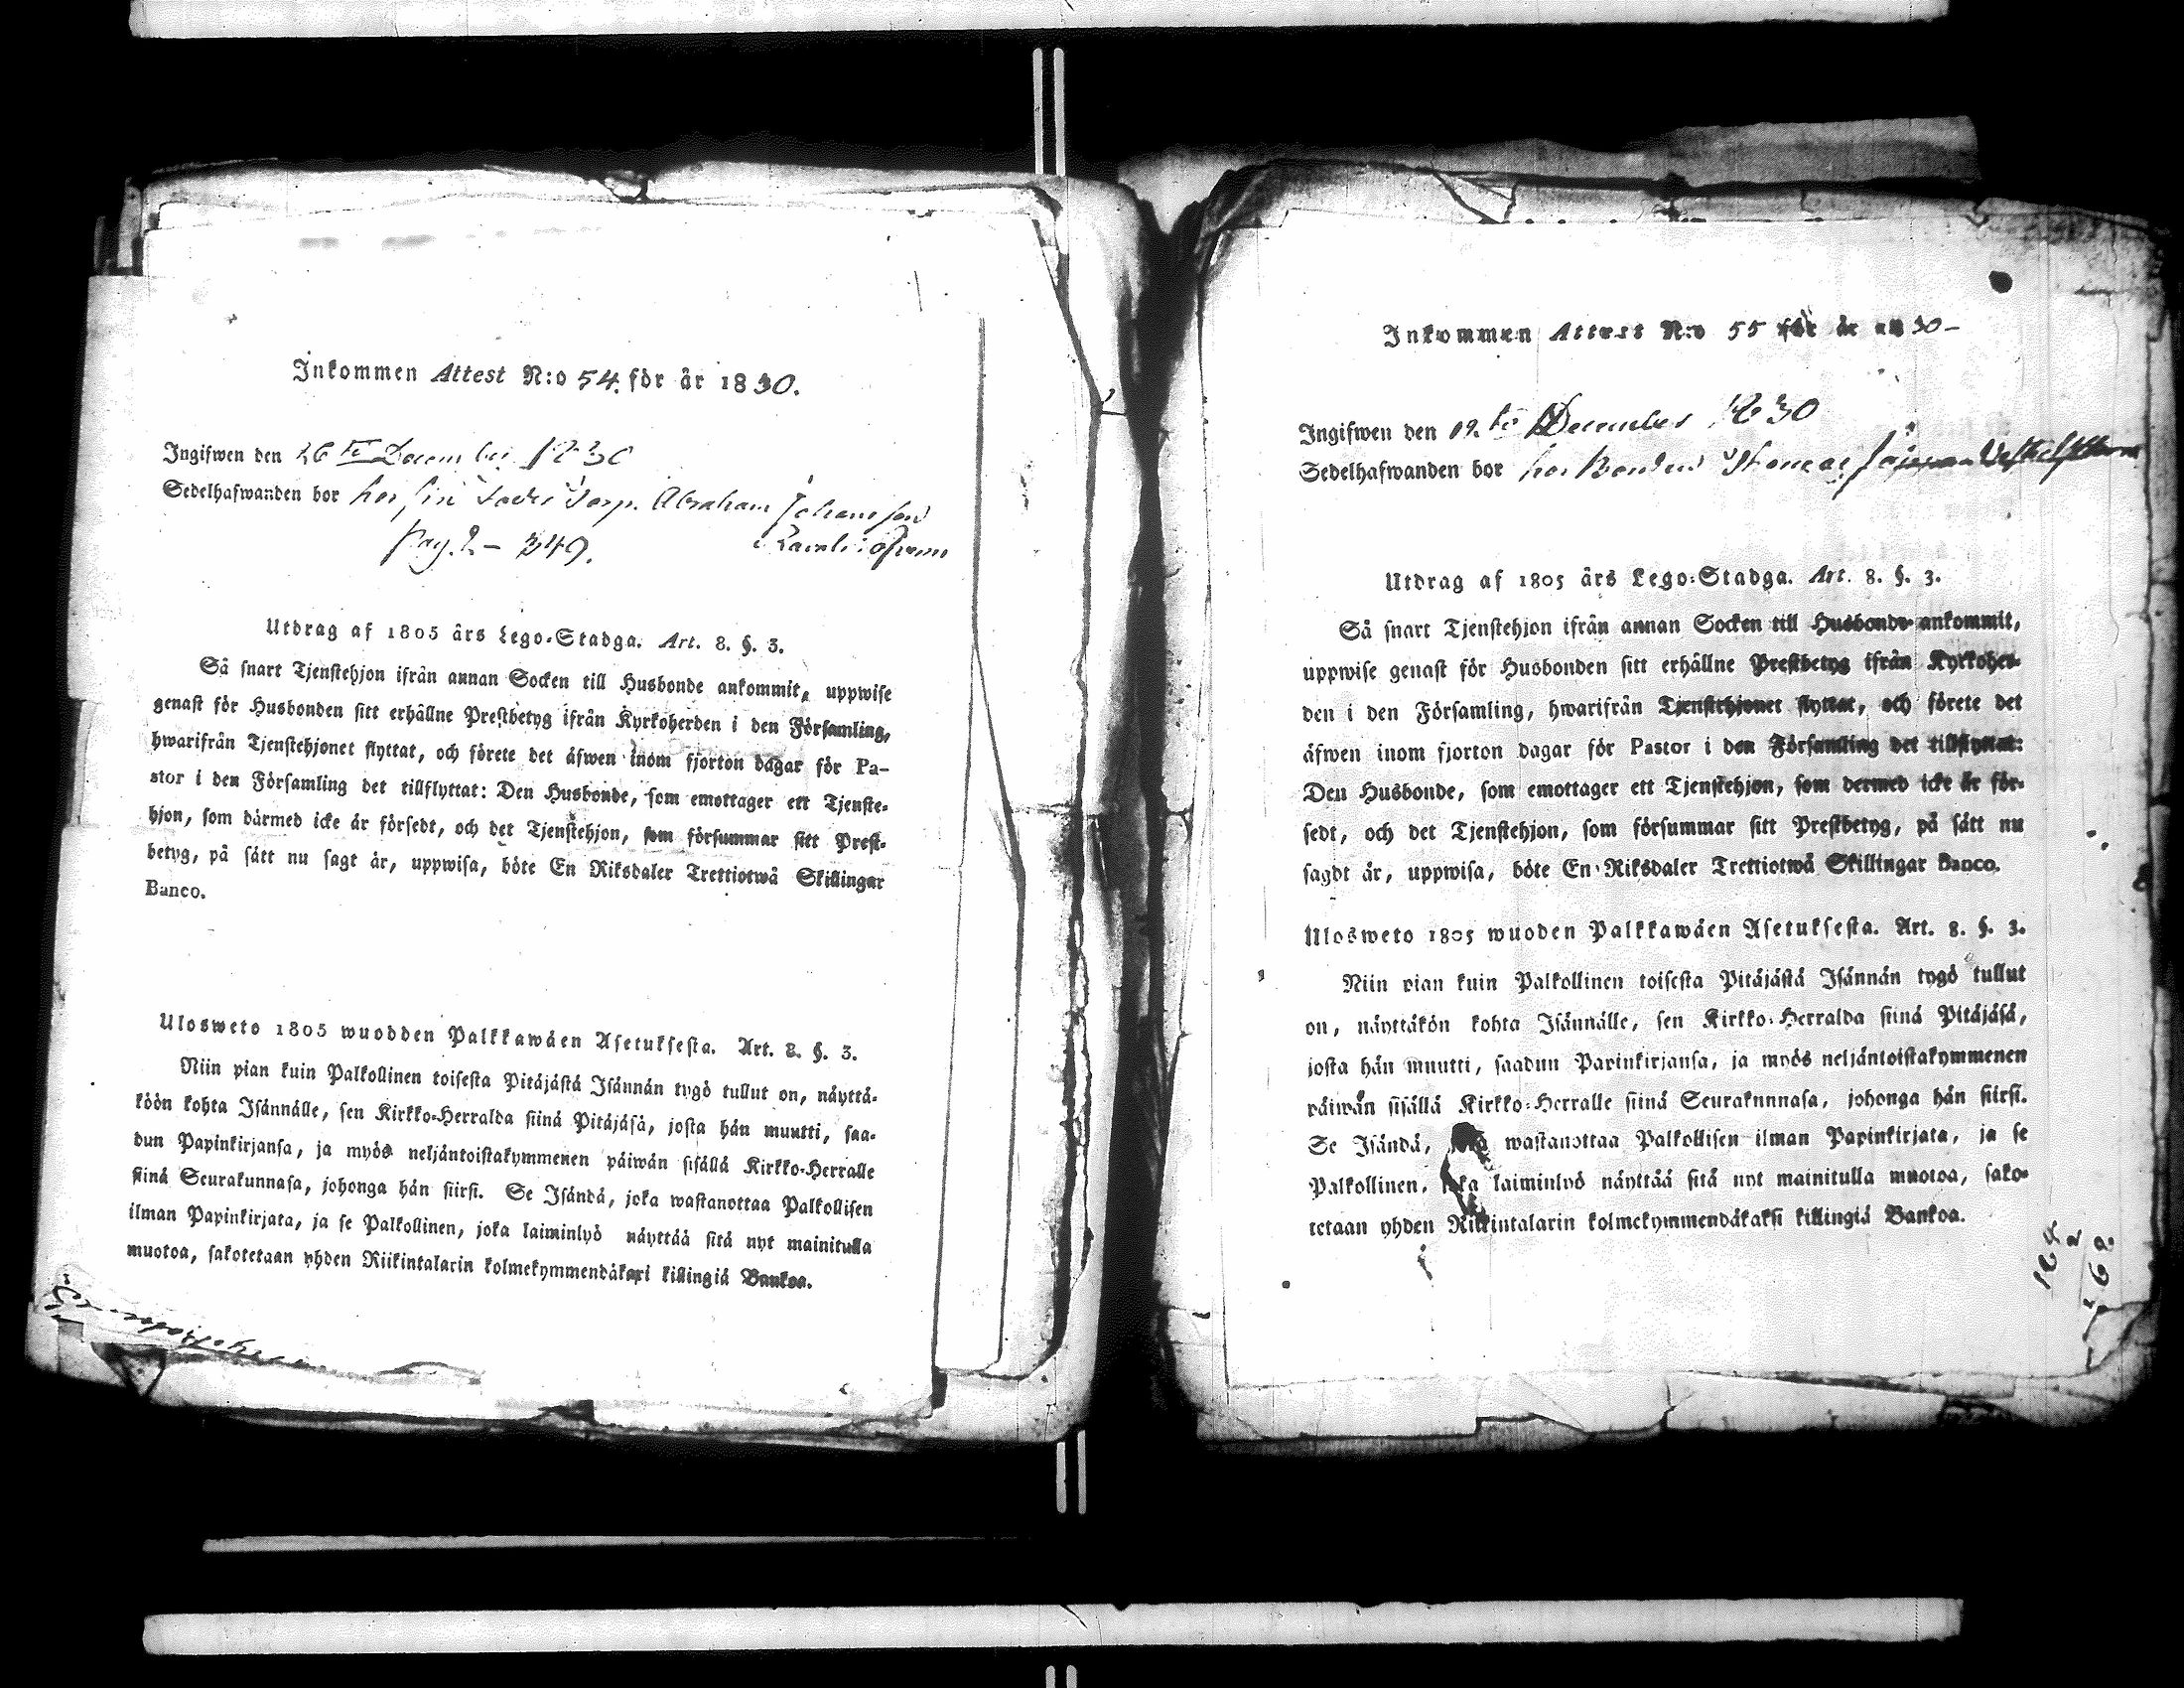 Inkommen Attest N:o 54. för år 1830.
Ingifwen den 26 te December 1830
Sedelhafwanden bor hos sin Torp. Abraham Johansson
Pag. 2 - 349.
Utdrag af 1805 års Lego-Stadga. Art. 8. §. 3.
Så snart Tjenstehjon ifrån annan Socken till Husbonde ankommit, uppwise
genast för Husbonden sitt erhållne Prestbetyg ifrån Kyrkoherden i den Församling,
hwarifrån Tjenstehjonet flyttat, och förete det äfwen inom fjorton dagar för Pa-
stor i den Församling det tillflyttat: Den Husbonde, som emottager ett Tjenste-
hjon, som därmed icke är försedt, och det Tjenstehjon, som försummar sitt Prest-
betyg, på sätt nu sagt är, uppwisa, böte En Riksdaler Trettiotwå Skillingar
Banco.
Ulosweto 1805 wuodden Palkkawäen Asetuksesta. Art. 8. §. 3.
Niin pian kuin Palkollinen toisesta Pitäjästä Isännän tygö tullut on, näyttä-
köön kohta Isännälle, sen Kirkko-Herralda siinä Pitäjäsä, josta hän muutti, saa-
dun Papinkirjansa, ja myös neljäntoistakymmenen päiwän sisällä Kirkko-Herralle
siinä Seurakunnasa, johonga hän siirsi. Se Isändä, joka wastanottaa Palkollisen
ilman Papinkirjata, ja se Palkollinen, joka laiminlyö näyttää sitä nyt mainitulla
muotoa, sakotetaan yhden Riikintalarin kolmekymmendäkaxi killingiä Bankoa.
Inkommen Attest N:o 55 för år 1830 -
Ingifwen den 19. de December 1830
Sedelhafwanden bor hos Bonden Thomas
Utdrag af 1805 års Lego-Stadga. Art. 8. §. 3.
Så snart Tjenstehjon ifrån annan Socken till Husbonde ankommit,
uppwise genast för Husbonden sitt erhållne Prestbetyg ifrån Kyrkoher-
den i den Församling, hwarifrån Tjenstehjonet flyttat, och förete det
äfwen inom fjorton dagar för Pastor i den Församling det tillflyttat:
Den Husbonde, som emottager ett Tjenstehjon, som dermed icke är för-
sedt, och det Tjenstehjon, som försummar sitt Prestbetyg, på sätt nu
sagdt är, uppwisa, böte En Riksdaler Trettiotwå Skillingar Banco.
Ulosweto 1805 wuoden Palkkawäen Asetuksesta. Art. 8. §. 3.
Niin pian kuin Palkollinen toisesta Pitäjästä Isännän tygö tullut
on, näyttäkön kohta Isännälle, sen Kirkko-Herralda siinä Pitäjäsä,
josta hän muutti, saadun Papinkirjansa, ja myös neljäntoistakymmenen
päiwän sisällä Kirkko-Herralle siinä Seurakunnasa, johonga hän siirsi.
Se Isändä, wastanottaa Palkollisen ilman Papinkirjata, ja se
Palkollinen, joka laiminlyö näyttää sitä nyt mainitulla muotoa, sako-
tetaan yhden Riikintalarin kolmekymmendäkaksi killingiä Bankoa.